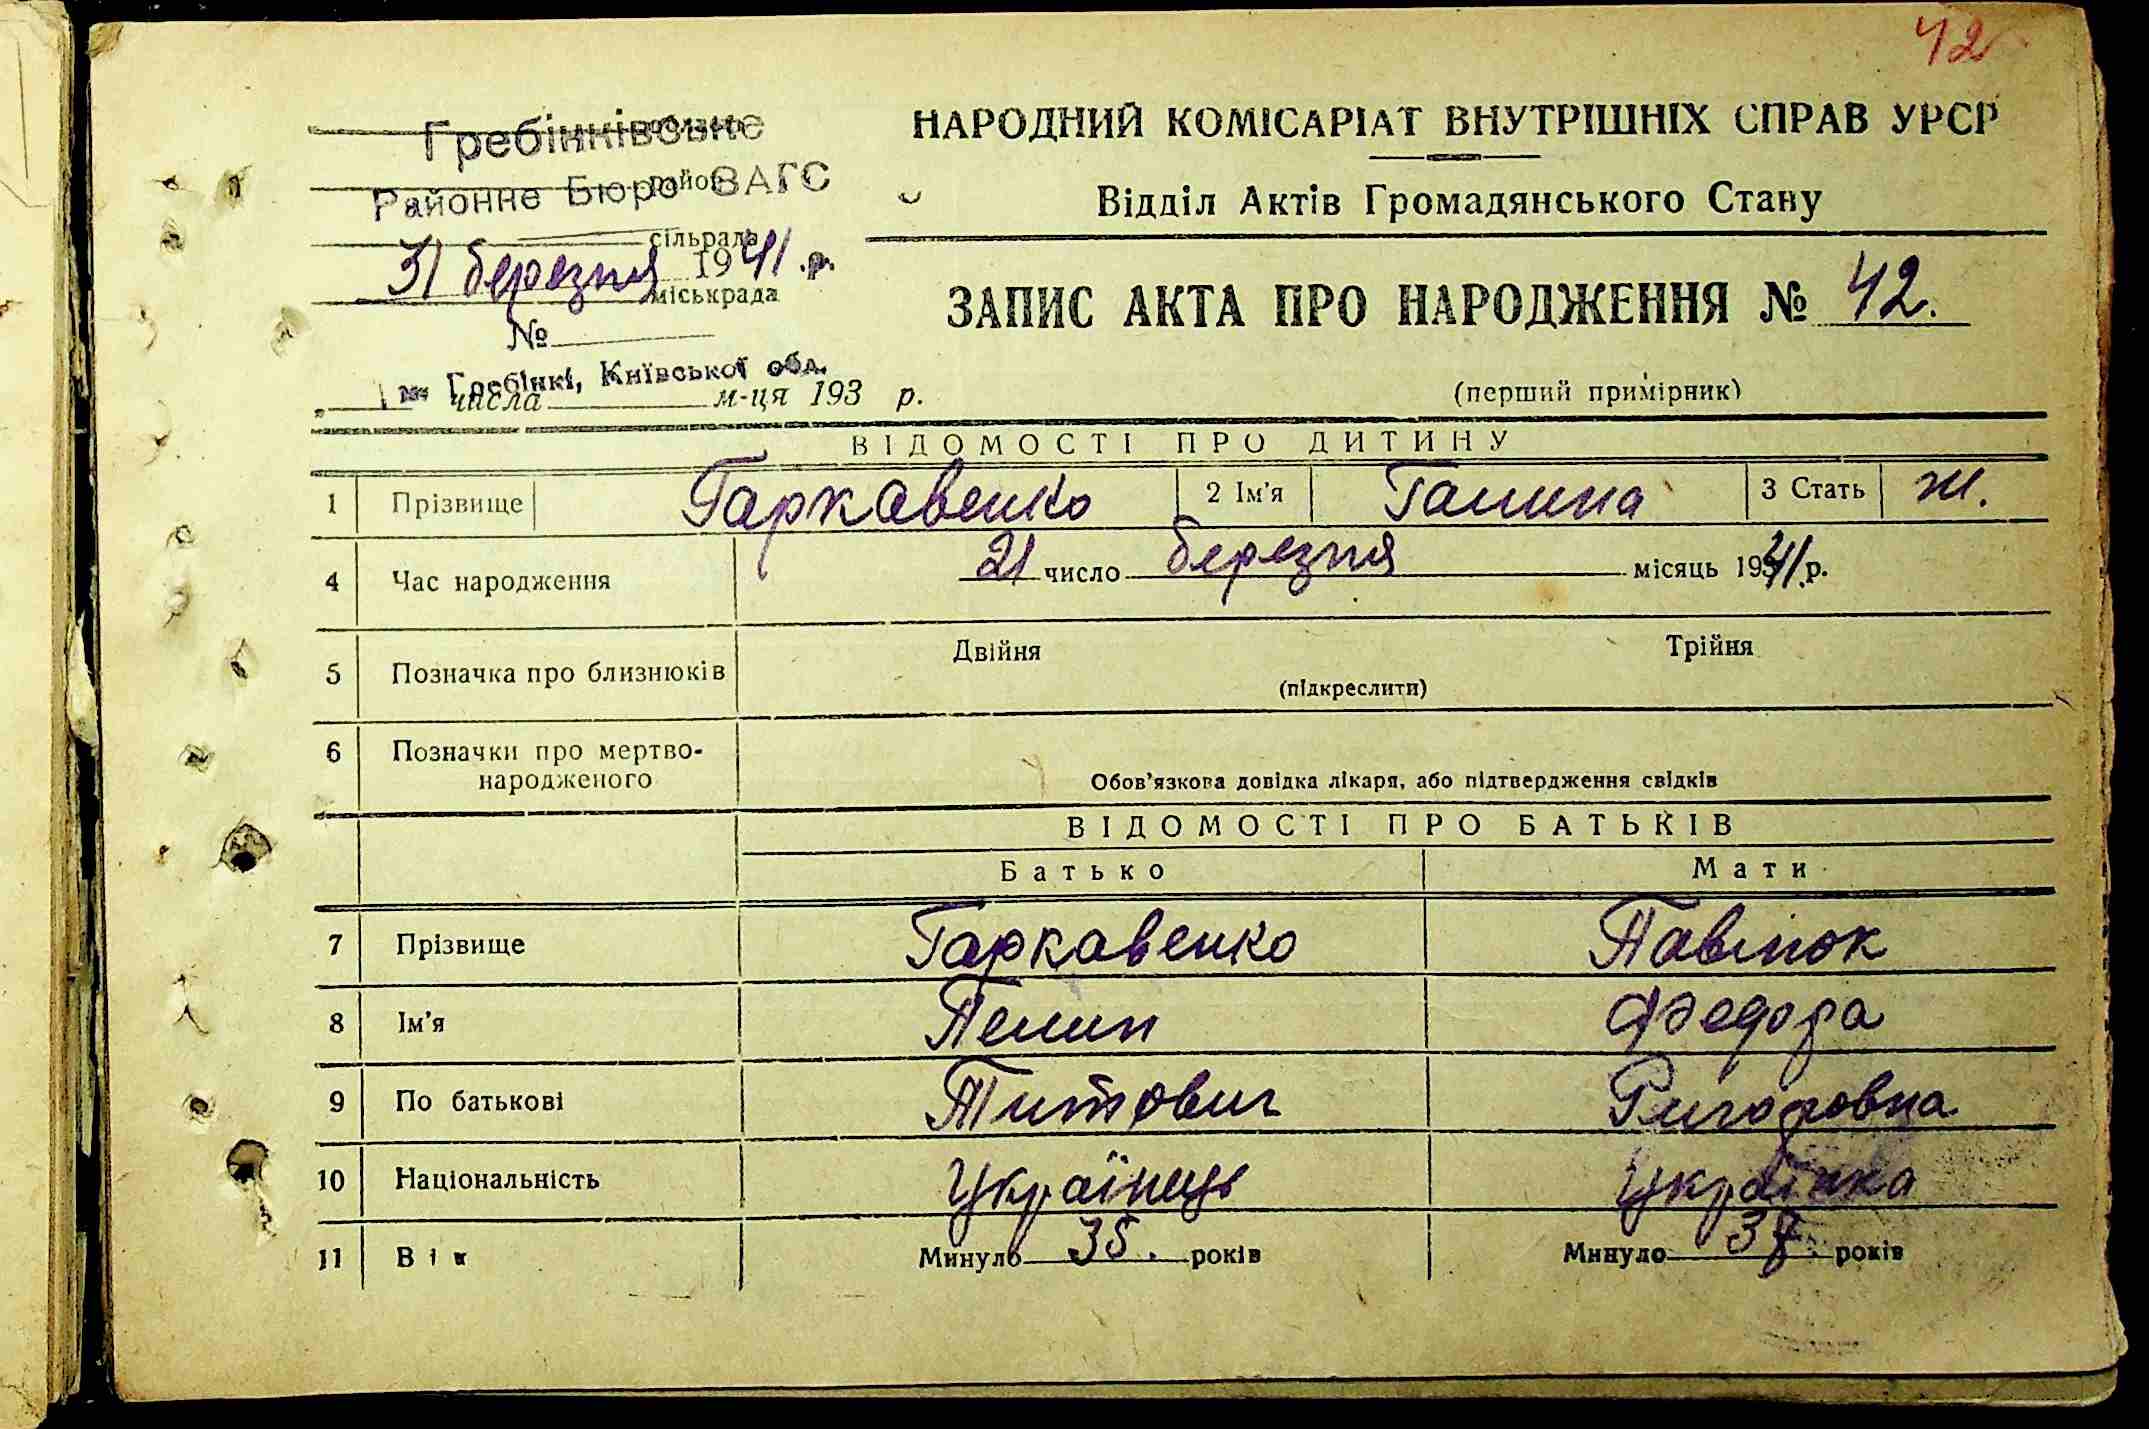 42
Гребінківське
НАРОДНИЙ КОМІСАРІАТ ВНУТРІШНІХ СПРАВ УРСР
Районне Бюро ЗАГС
район
Відділ Актів Громадянського Стану
сільрада
31 березня 1941 р.
міськрада
ЗАПИС АКТА ПРО НАРОДЖЕННЯ № 42.
№
м. Гребінкі, Київської обл.
числа м-ця 193 р.
(перший примірник)
ВІДОМОСТІ ПРО ДИТИНУ
1 Прізвище Гаркавенко 2 Ім'я Галина 3 Стать ж.
4 Час народження 21 число березня місяць 1941 р.
5 Позначка про близнюків Двійня Трійня
(підкреслити)
6 Позначки про мертво-
народженого
Обов'язкова довідка лікаря, або підтвердження свідків
ВІДОМОСТІ ПРО БАТЬКІВ
Батько Мати
7 Прізвище Гаркавенко Павлюк
8 Ім'я Пилип Федора
9 По батькові Титович Григоровна
10 Національність Українець Українка
11 Вік Минуло 35. років Минуло років